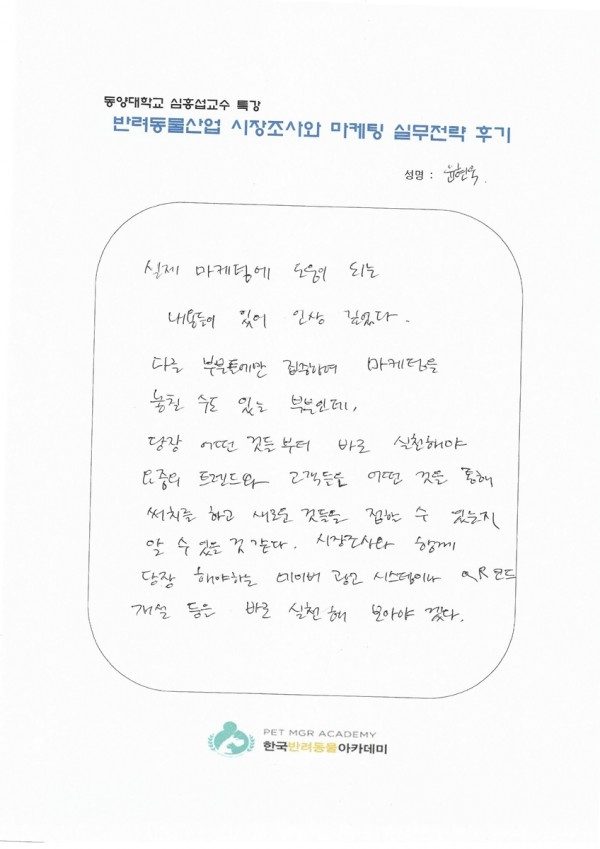 동양대학교 심홍섭교수 특강
반려동물산업 시장조사와 마케팅 실무전략 후기
성명 : 윤현욱.
실제 마케팅에 도움이 되는
내용들이 있어 인상 깊었다.
다른 부분들에만 집중하며 마케팅을
놓칠 수도 있는 부분인데,
당장 어떤 것들부터 바로 실천해야
요즘의 트렌드와 고객들을 어떤 것을 통해
써치를 하고 새로운 것들을 접할 수 있는지
알 수 있을 것 같다. 시장조사와 함께
당장 해야하는 네이버 광고 시스템이나 QR코드
개설 등은 바로 실천해 보아야 겠다.
PET MGR ACADEMY
한국반려동물아카데미